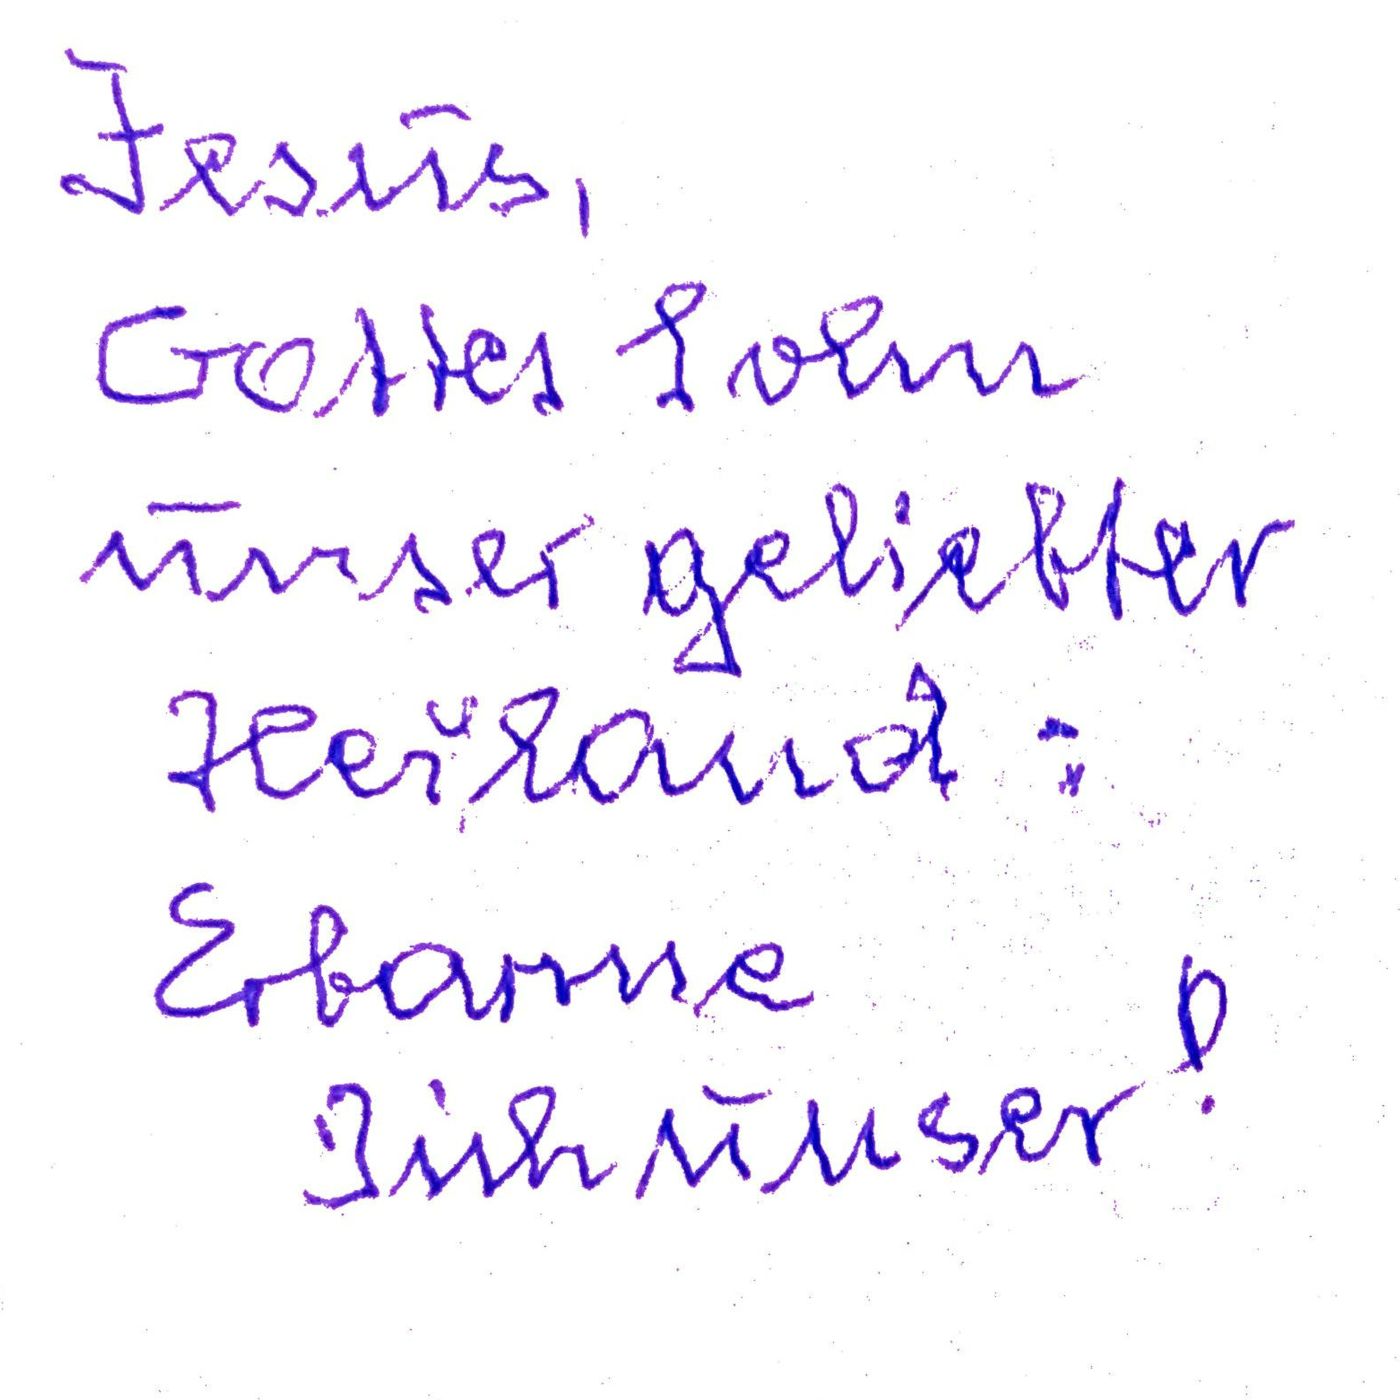 Jesus,
Gottes Sohn
unser geliebter
Heiland:
Erbarme
Dich unser!